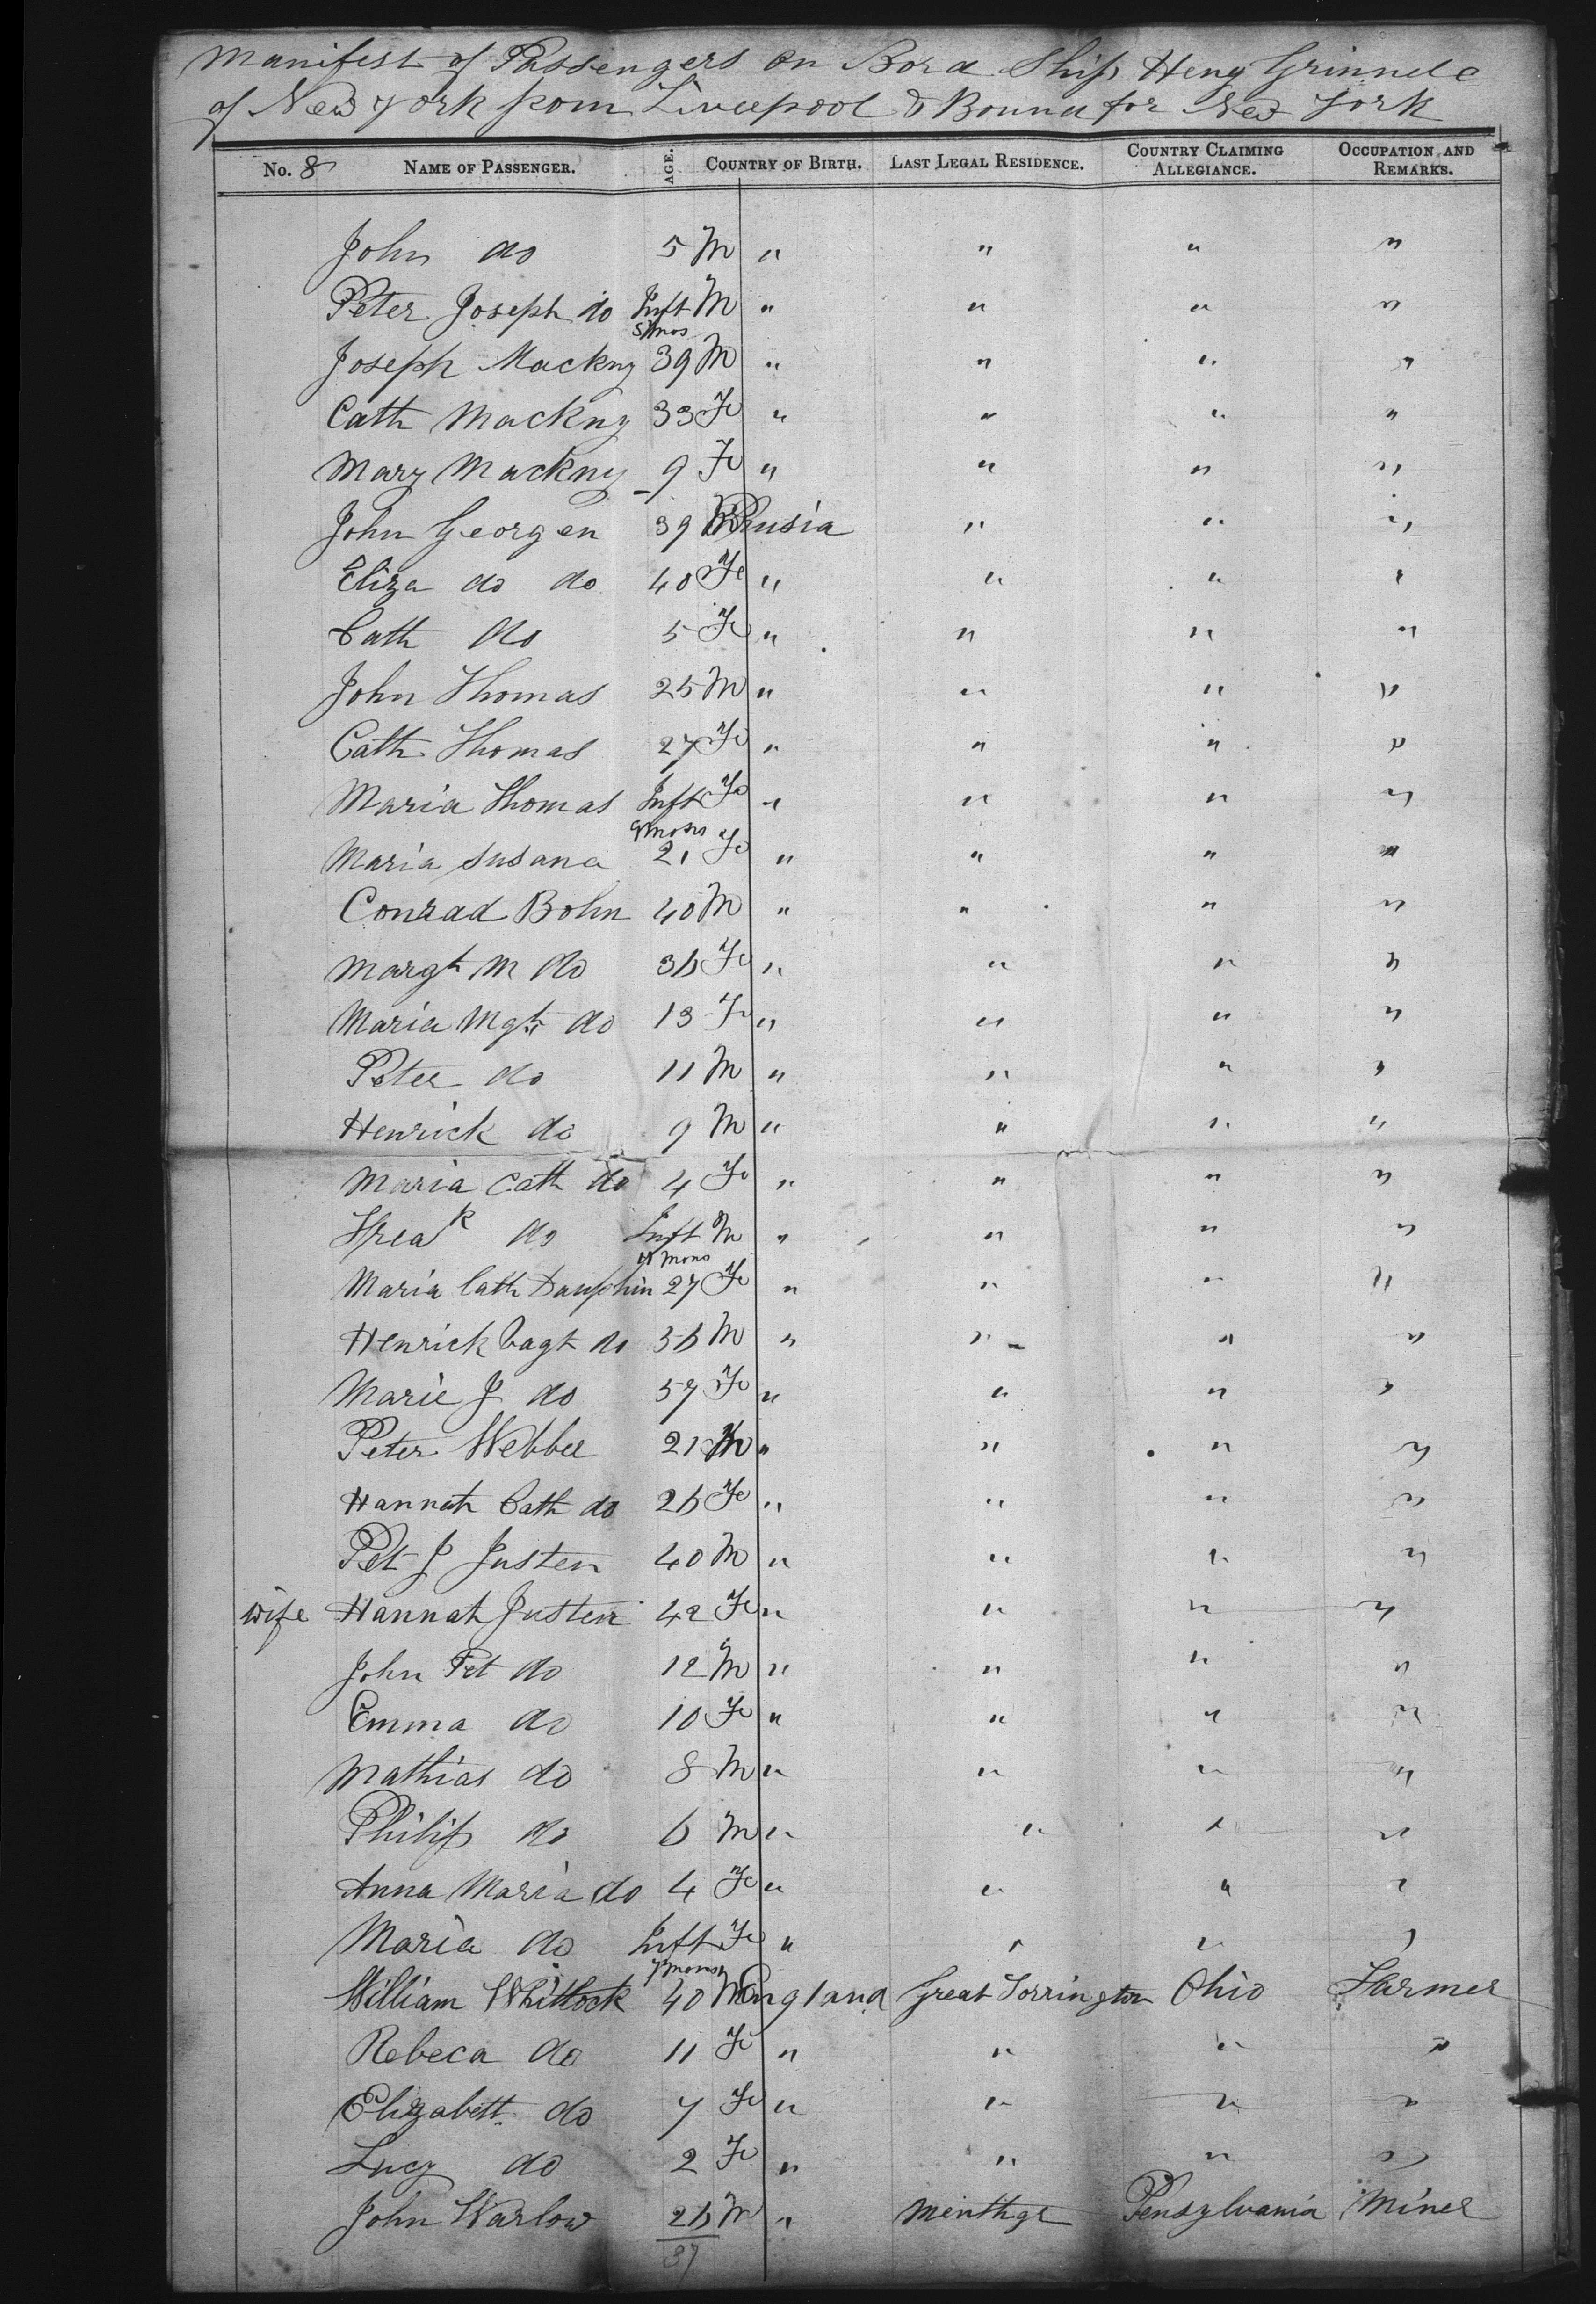 Manifest of Passengers on Bord Ship Heny Grinnele
of New York from Liverpool & Bound for New York
No. 8 NAME OF PASSENGER. AGE. COUNTRY OF BIRTH. LAST LEGAL RESIDENCE. COUNTRY CLAIMING ALLEGIANCE. OCCUPATION AND REMARKS.
John do 5 M " " " "
Peter Joseph do Inft M " " " "
5 mos
Joseph Mackny 39 M " " " "
Cath Mackny 33 Fe " " " "
Mary Mackny 9 Fe " " " "
John Georgen 39 M Prusia " " "
Eliza do do 40 Fe " " " "
Cath do 5 Fe " " " "
John Thomas 25 M " " " "
Cath Thomas 27 Fe " " " "
Maria Thomas Inft Fe " " " "
9 mos
Maria Susana 21 Fe " " " "
Conrad Bohn 40 M " " " "
Margt M do 36 Fe " " " "
Maria Mgt do 13 Fe " " " "
Peter do 11 M " " " "
Henrick do 9 M " " " "
Maria Cath do 4 Fe " " " "
Fredk do Inft M " " " "
mons
Maria Cath Dauphin 27 Fe " " " "
Henrick do 36 M " " " "
Marie J do 57 Fe " " " "
Peter Webber 21 M " " " "
Hannah Cath do 26 Fe " " " "
Pet J Justen 40 M " " " "
wife Hannah Justen 42 Fe " " " "
John Pet do 12 M " " " "
Emma do 10 Fe " " " "
Mathias do 8 M " " " "
Philip do 6 M " " " "
Anna Maria do 4 Fe " " " "
Maria do Inft Fe " " " "
7 mons
William Whitlock 40 M England Great Torrington Ohio Farmer
Rebeca do 11 Fe " " " "
Elizabett do 7 Fe " " " "
Lucy do 2 Fe " " " "
John Warlow 26 M " Menthgr Pensylvania Miner
37